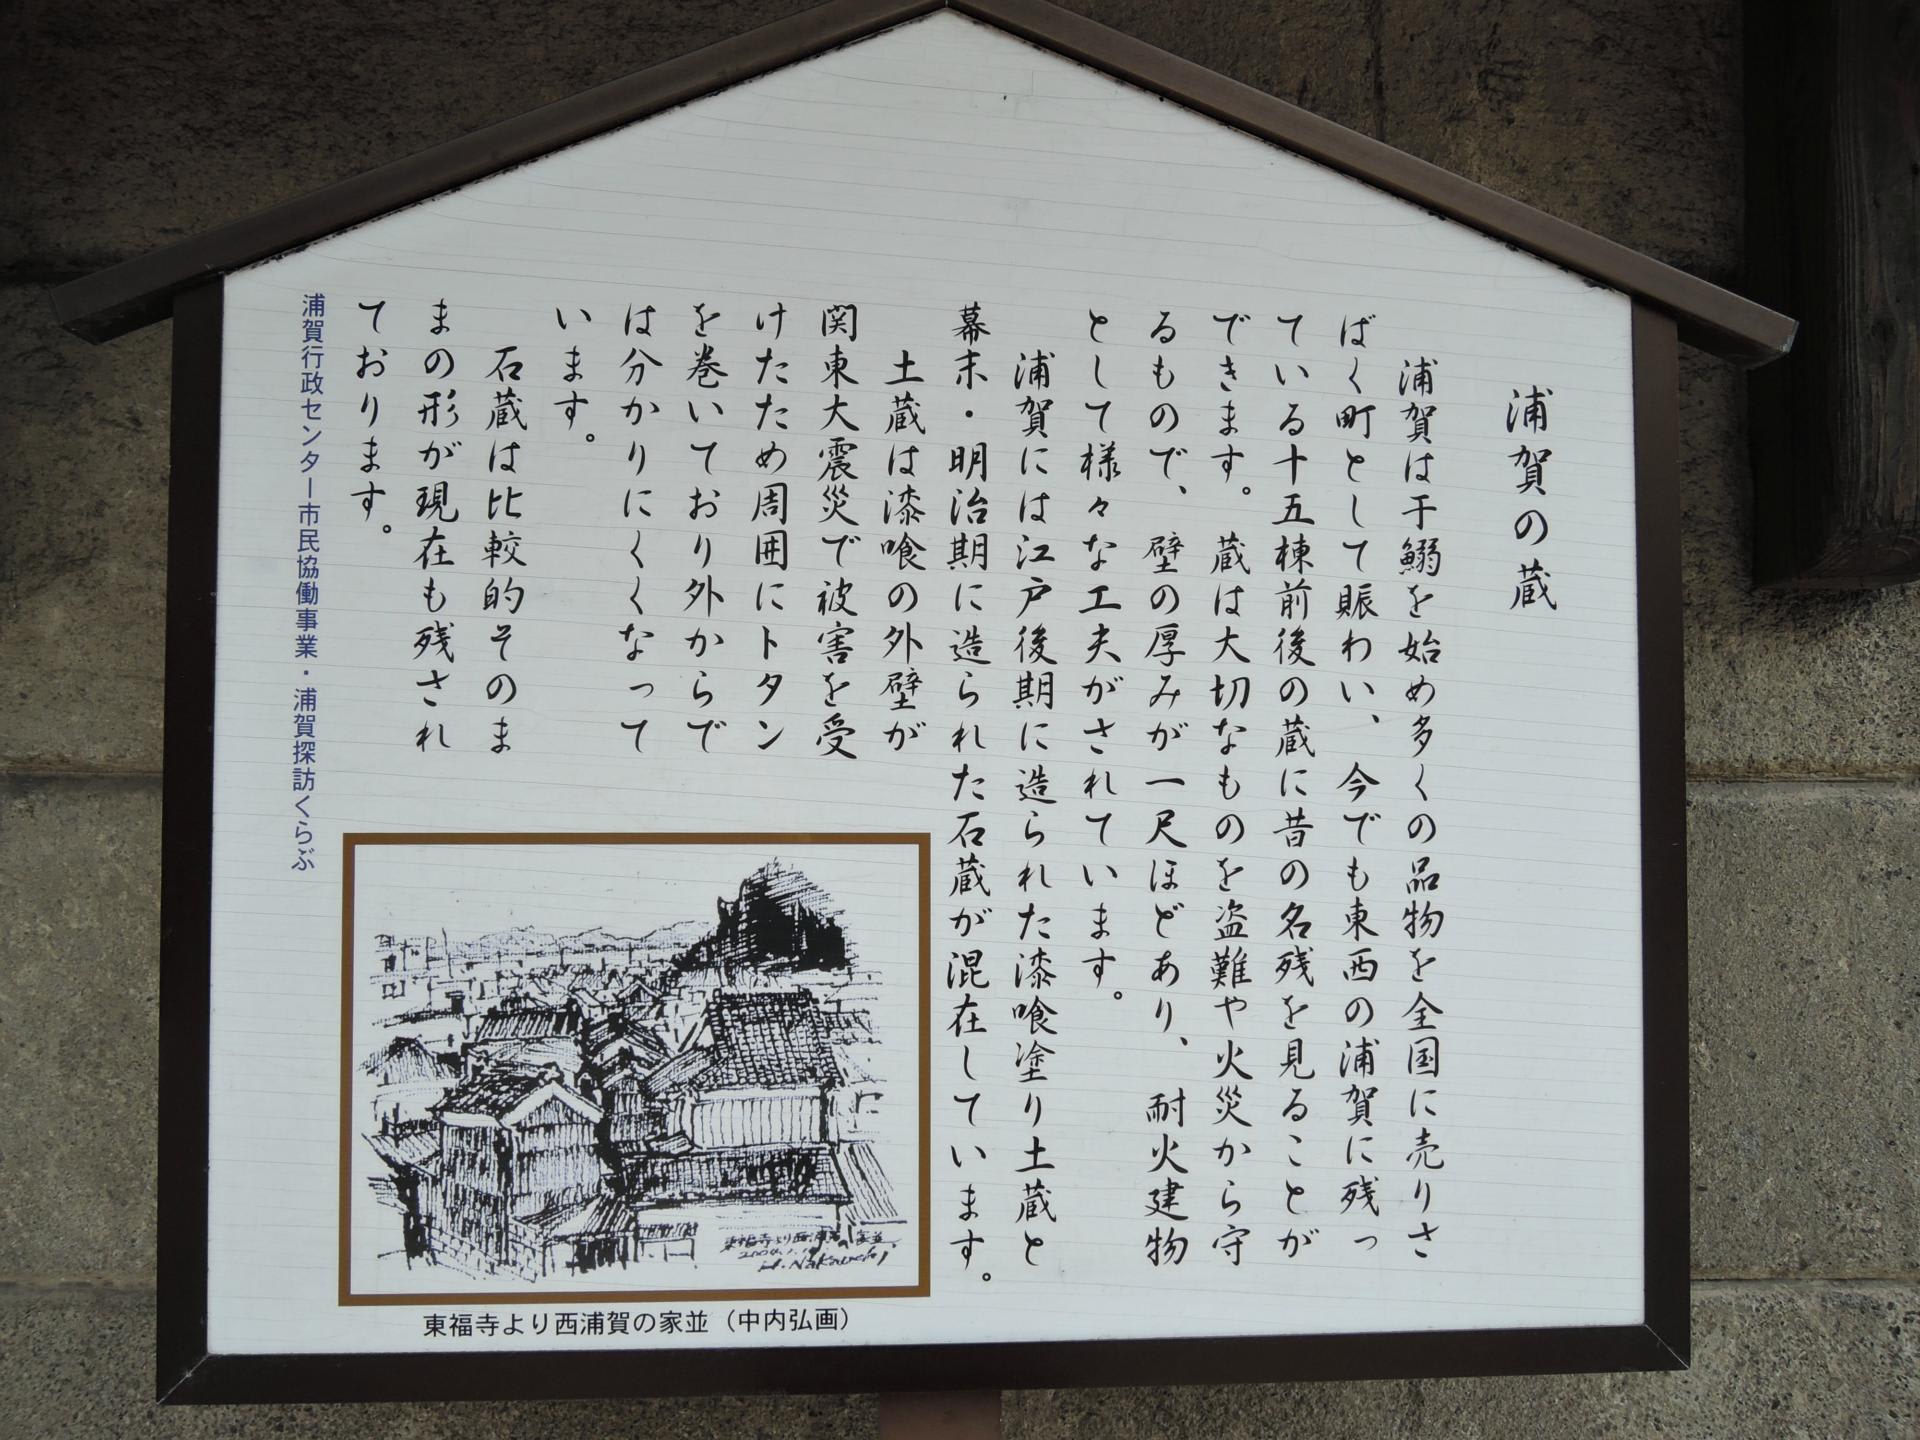 浦賀の蔵
浦賀は干鰯を始め多くの品物を全国に売りさ
ばく町として賑わい、今でも東西の浦賀に残っ
ている十五棟前後の蔵に昔の名残を見ることが
できます。蔵は大切なものを盗難や火災から守
るもので、壁の厚みが一尺ほどあり、耐火建物
として様々な工夫がされています。
浦賀には江戸後期に造られた漆喰塗り土蔵と
幕末・明治期に造られた石蔵が混在しています。
土蔵は漆喰の外壁が
関東大震災で被害を受
けたため周囲にトタン
を巻いており外からで
は分かりにくくなって
います。
石蔵は比較的そのま
まの形が現在も残され
ております。
浦賀行政センター市民協働事業・浦賀探訪くらぶ
東福寺より西浦賀の家並
東福寺より西浦賀の家並（中内弘画）